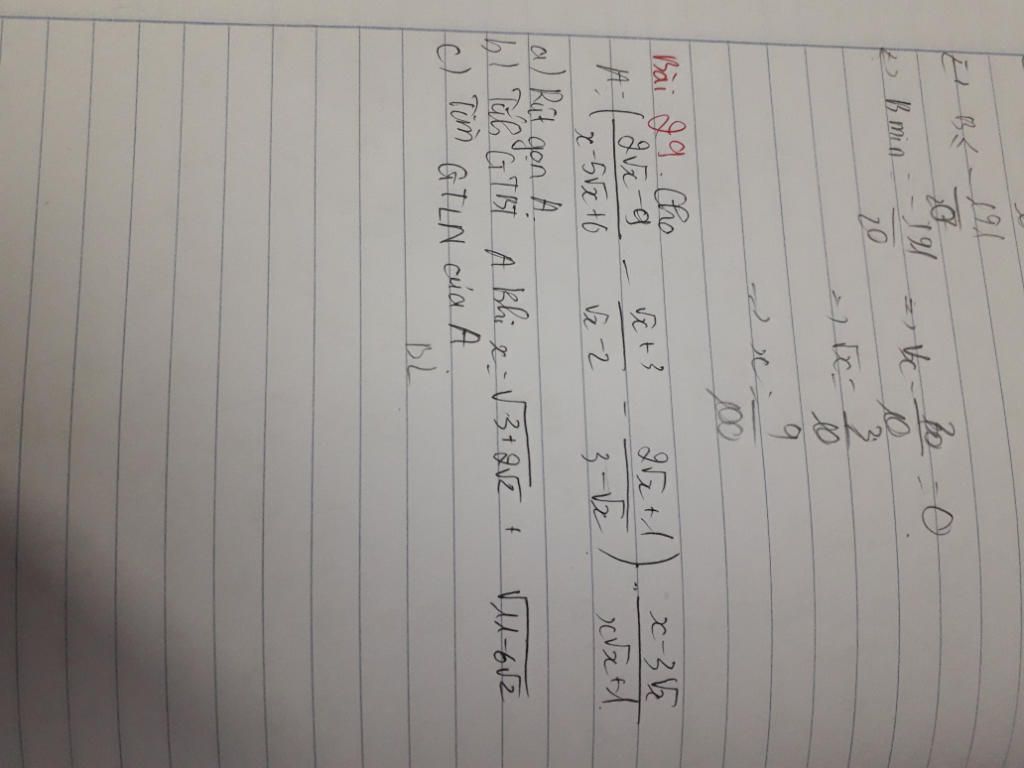 => B ≤ -191/20
=> B min = -191/20 => √x - 30/10 = 0
=> √x = 3/10
=> x = 9/100
Bài 29. Cho
A = (2√x - 9 / x - 5√x + 6 - √x + 3 / √x - 2 - 2√x + 1 / 3 - √x) : x - 3√x / x√x + 1
a) Rút gọn A
b) Tính GTBT A khi x = √3+2√2 + √11-6√2
c) Tìm GTLN của A